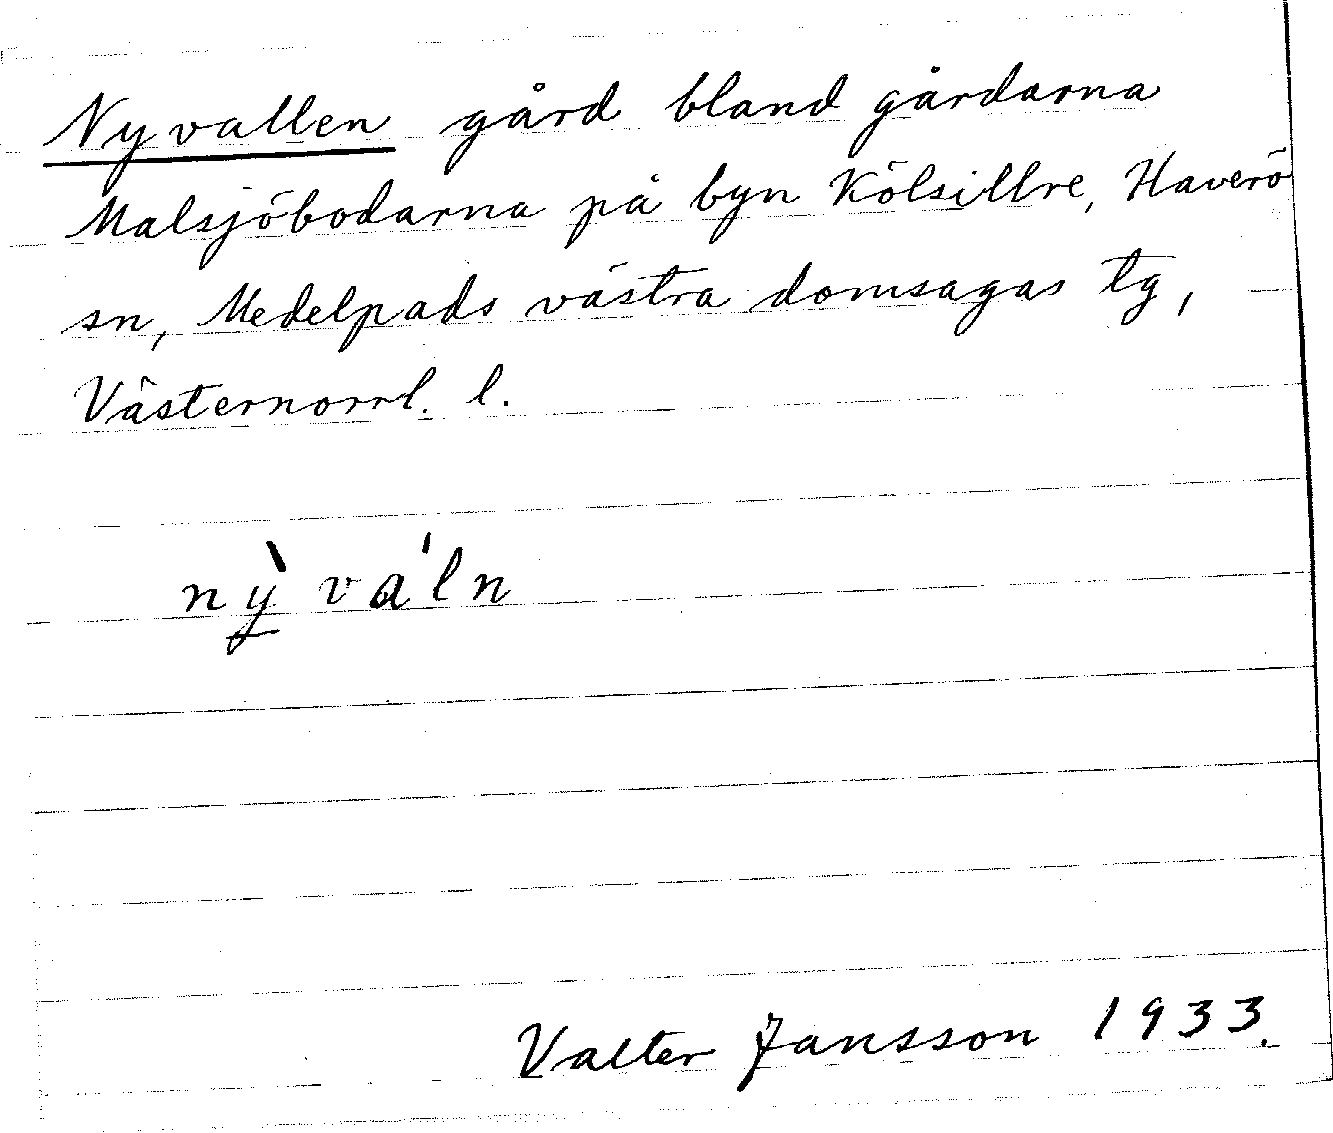 Nyvallen gård bland gårdarna
Malsjöbodarna på byn Kölsillre, Haverö
sn, Medelpads västra domsagas tg,
Västernorrl. l.
nỳ̲ va'ln
Valter Jansson 1933.